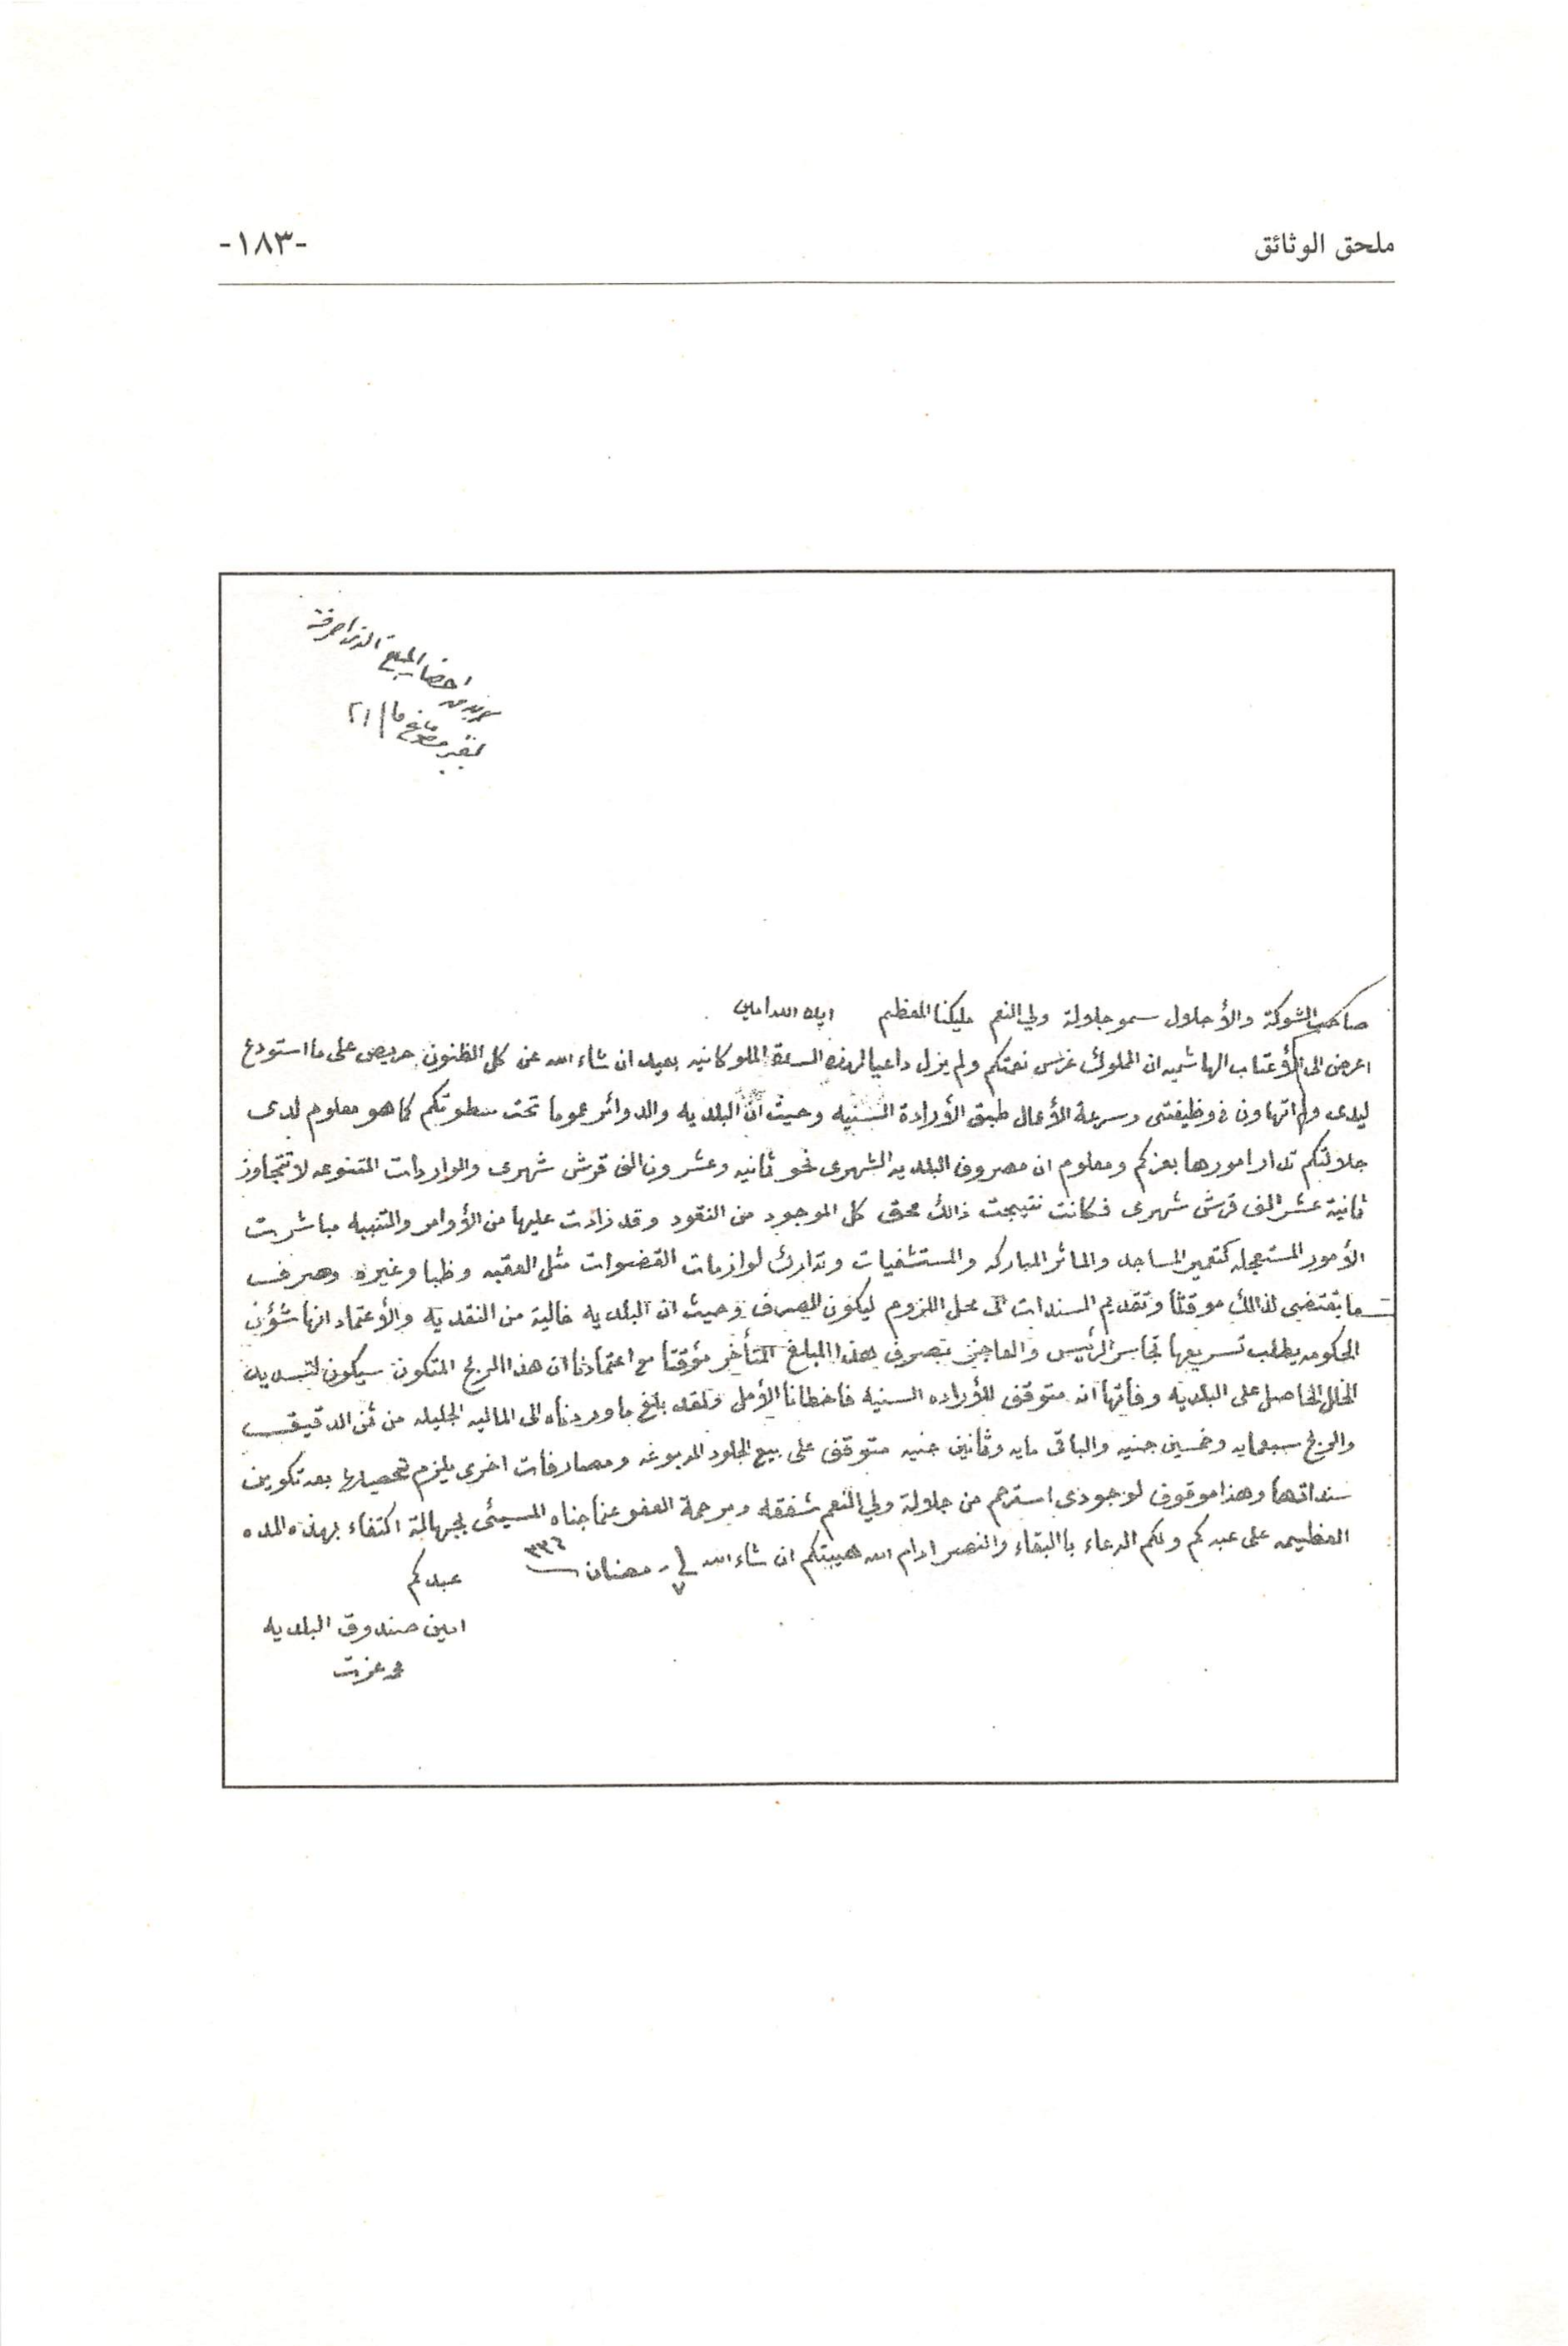 ملحق الوثائق
-١٨٣-
احضار المبلغ الذي اصرفته
٢١
صاحب الشوكة والأجلال سمو جلالة ولي النعم مليكنا المعظم ايده الله امين
اعرض الى الأعتاب الهاشميه ان المملوك غرس نعمتكم ولم يزل داعيا لهذه السدة الملوكانيه بعيد ان شاء الله عن كل الظنون حريص على ما استودع
ليدى ولم اتهاون في وظيفتى وسرعة الأعمال طبق الأرادة السنيه وحيث ان البلديه والدوائر عموما تحت سطوتكم كما هو معلوم لدى
جلالتكم تدار امورها بعزكم ومعلوم ان مصروف البلديه الشهرى نحو ثمانيه وعشرون الف قرش شهرى والواردات المتنوعه لا تتجاوز
ثمانية عشر الف قرش شهرى فكانت نتيجت ذالك محق كل الموجود من النقود وقد زادت عليها من الأوامر والتنبيه مباشرت
الأمور المستعجله كتعمير المساجد والماثر المباركه والمستشفيات وتدارك لوازمات القضوات مثل العقبه وظبا وغيره وصرف
ما يقتضى لذالك موقتا وتقديم السندات الى محل اللزوم ليكون الصرف وحيث ان البلديه خالية من النقديه والأعتماد انها شؤن
الحكومه يطلب تسريعها تجاسر الرئيس والعاجز بتصرف بهذا المبلغ المتأخر مؤقتا مع اعتمادنا ان هذا الربح المتكون سيكون لتسديد
الخلل الحاصل على البلديه وفاتها انه متوقف للأراده السنيه فأخطانا الأمل ولقد بلغ ما وردناه الى الماليه الجليله من ثمن الدقيق
والربح سبعمايه وخمسين جنيه والباقى مايه وثمانين جنيه متوقف على بيع الجلود المدبوغه ومصارفات اخرى يلزم تحصيلها بعد تكوين
سنداتها وهذا موقوف لوجودى استرحم من جلالة ولي النعم شفقه ومرحمة العفو عنما جناه المسيئى بجهالة اكتفاء بهذه المده
العظيمه على عبدكم ولكم الدعاء باالبقاء والنصر ادام الله هيبتكم ان شاء الله في ٧ رمضان ٣٣٦
عبدكم
امين صندوق البلديه
محمد عزت